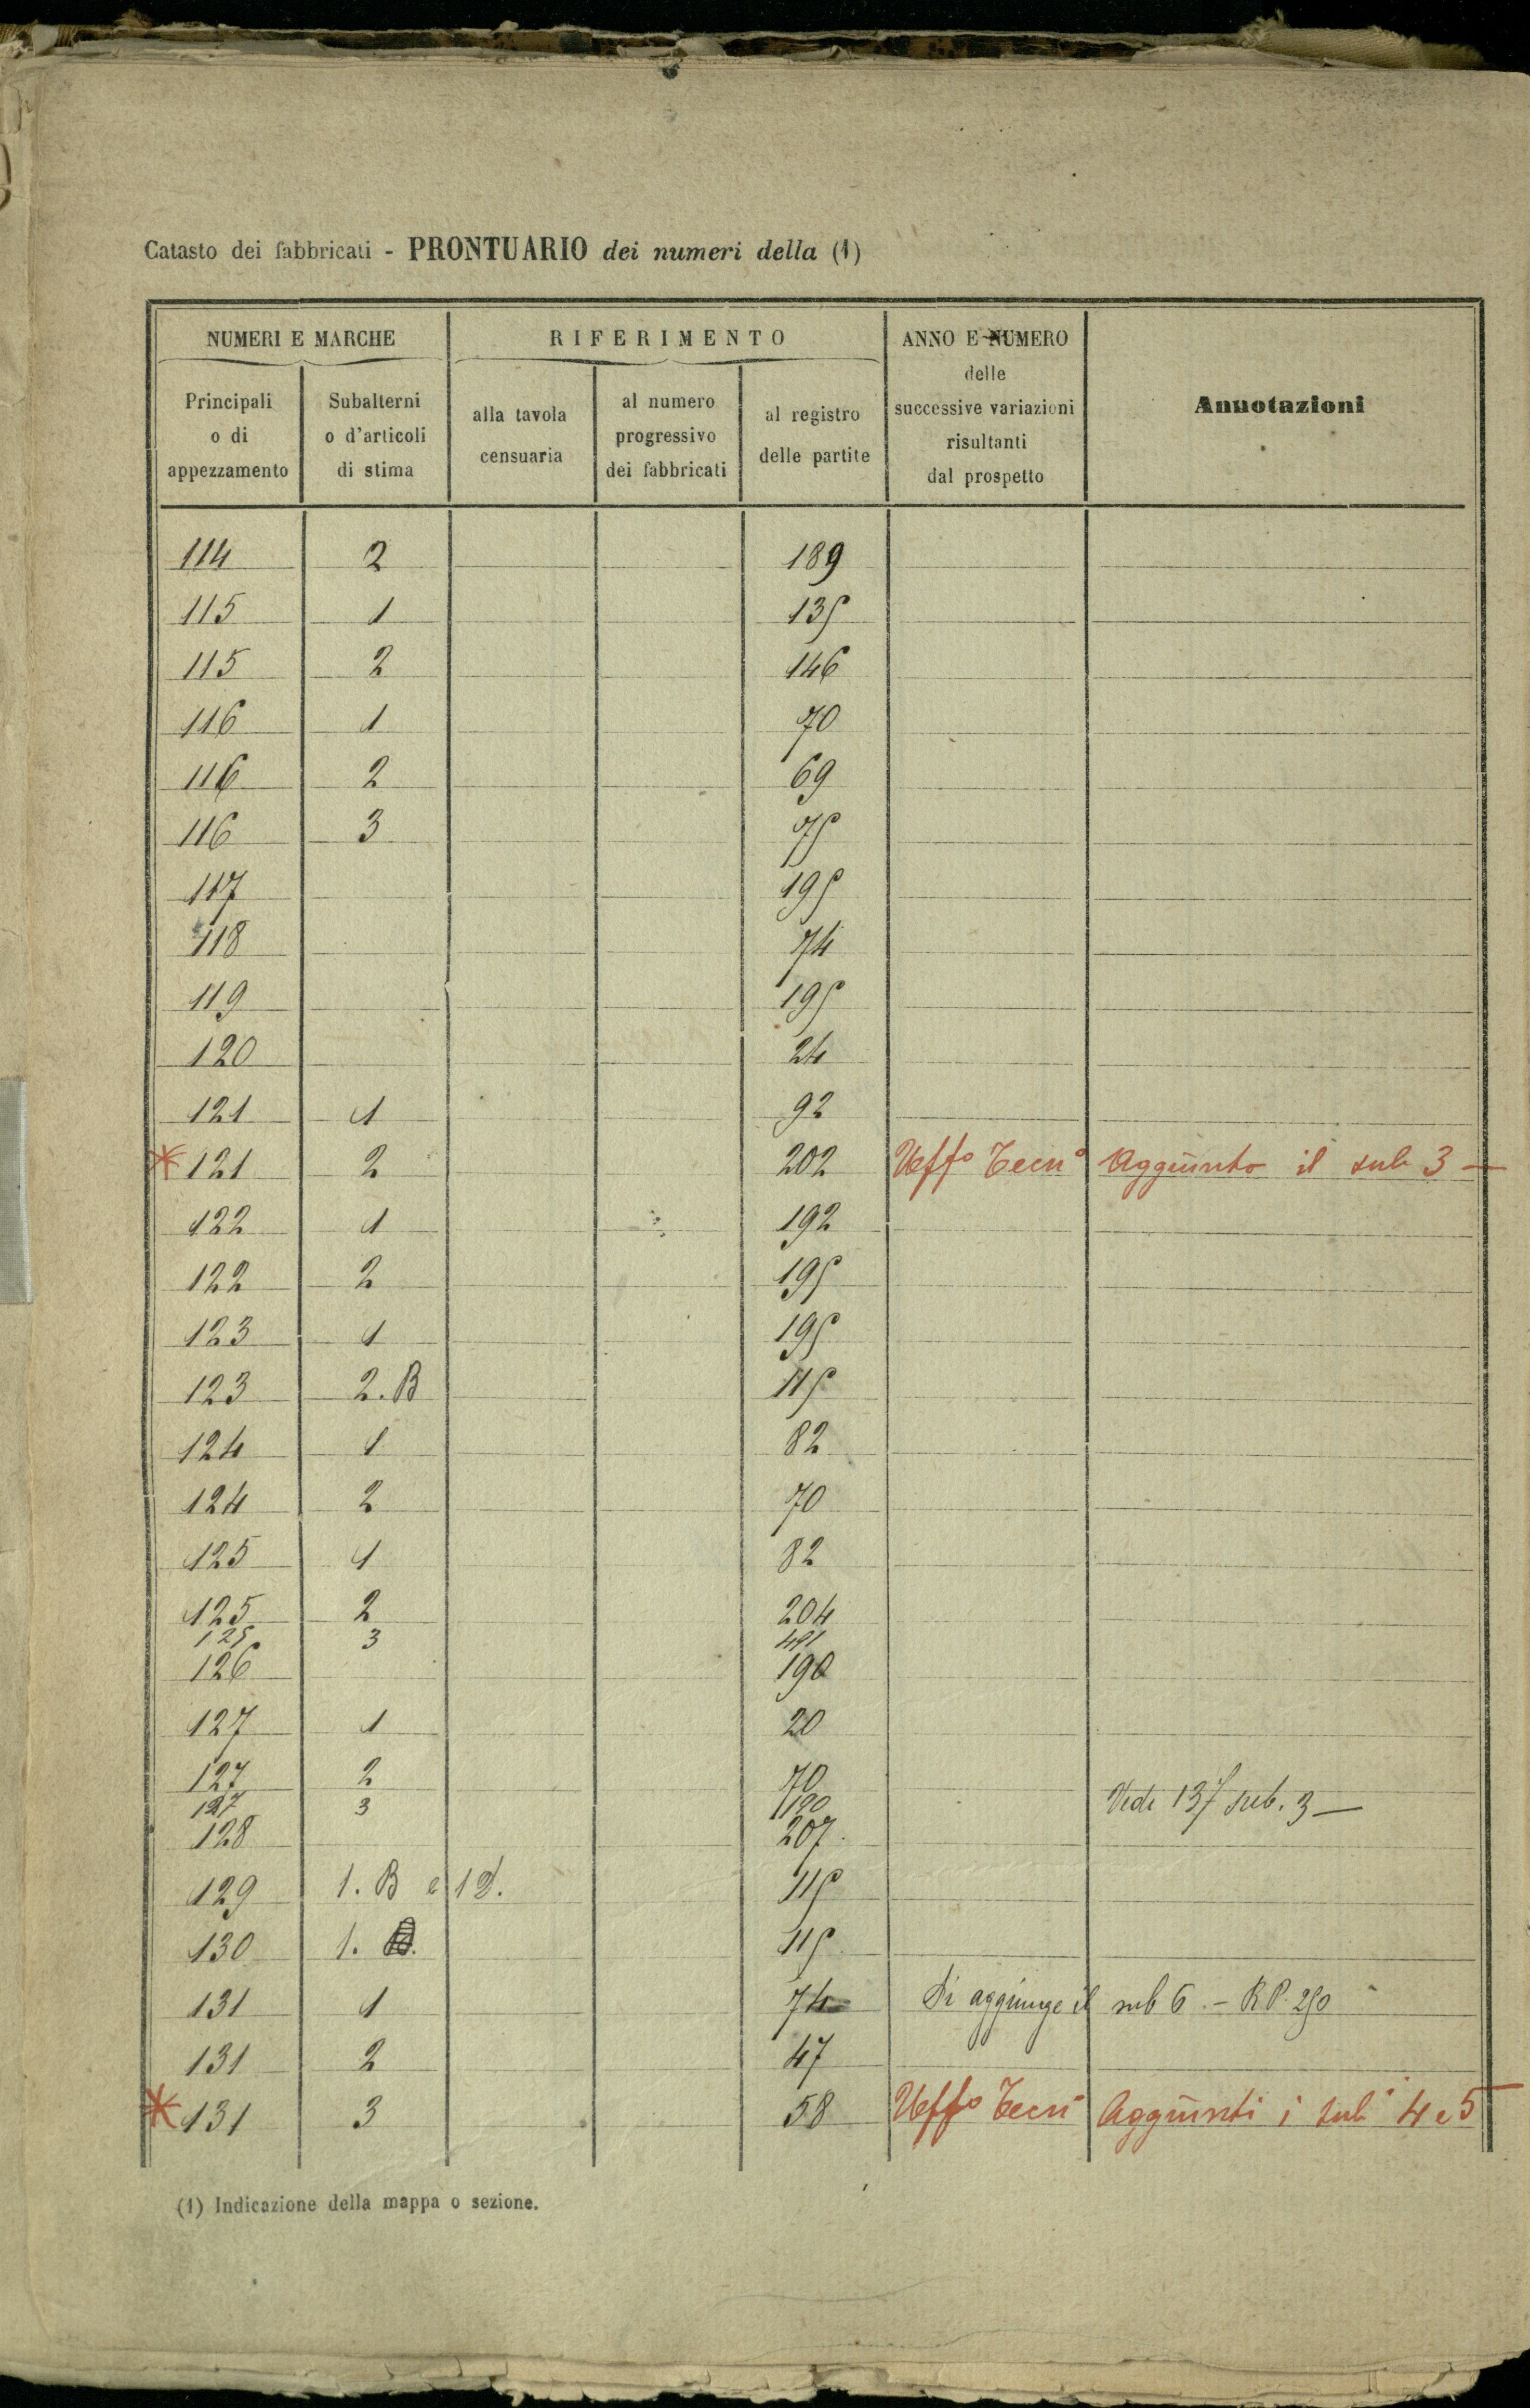 Catasto dei fabbricati - PRONTUARIO dei numeri della (1)
NUMERI E MARCHE
RIFERIMENTO
ANNO E NUMERO
delle
successive variazioni
risultanti
dal prospetto
Annotazioni
Principali
o di
appezzamento
Subalterni
o d'articoli
di stima
alla tavola
censuaria
al numero
progressivo
dei fabbricati
al registro
delle partite
114 2 189
115 1 135
115 2 146
116 1 70
116 2 69
116 3 75
117 195
118 74
119 195
120 24
121 1 92
* 121 2 202 Uffo Tecno Aggiunto il sub 3 —
122 1 192
122 2 195
123 1 195
123 2. B 115
124 1 82
124 2 70
125 1 82
125 2 204
125 3
126 190
127 1 20
127 2 70
127 3 120 Vedi 137 sub. 3 —
128 207.
129 1. B e 12. 115
130 1. 115
131 1 74 Si aggiunge il sub 6 - RP. 250
131 2 47
* 131 3 58 Uffo Tecno Aggiunti i sub 4 e 5
(1) Indicazione della mappa o sezione.